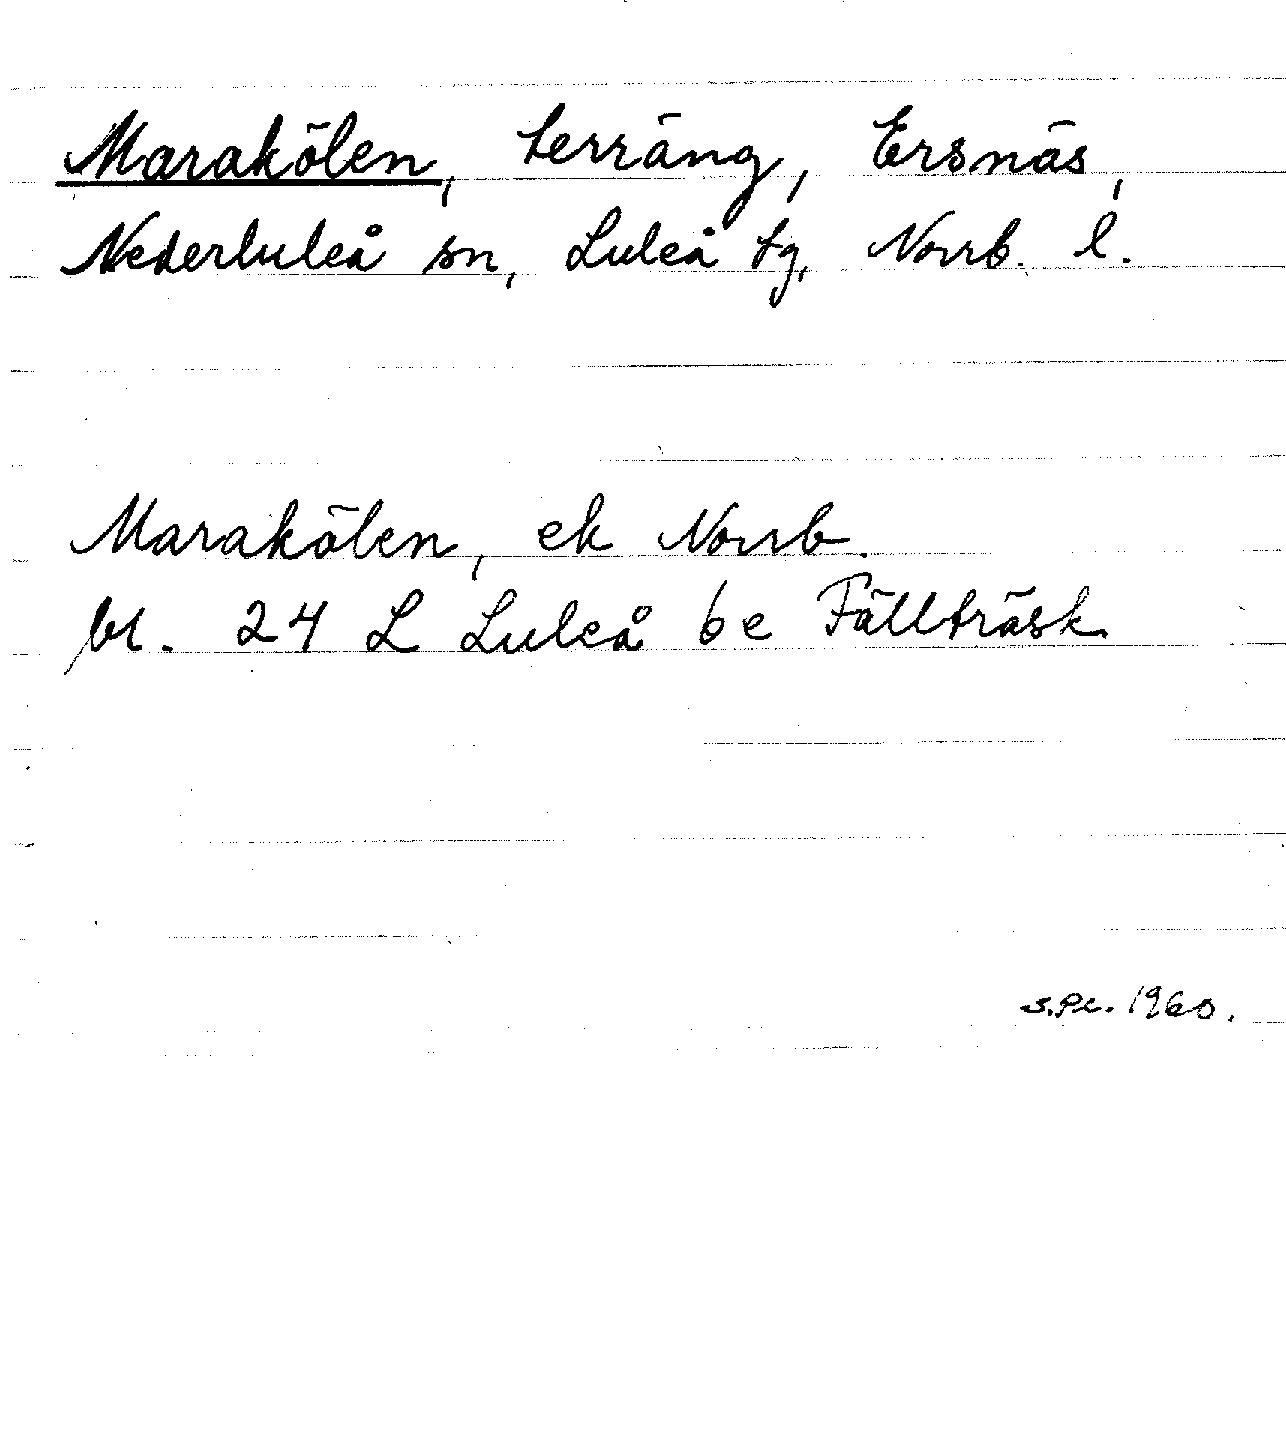 Marakölen, terräng, Ersnäs,
Nederluleå sn, Luleå tg, Norrb. l.
Marakölen, ek Norrb.
bl. 24 L Luleå 6e Fällträsk.
1960.